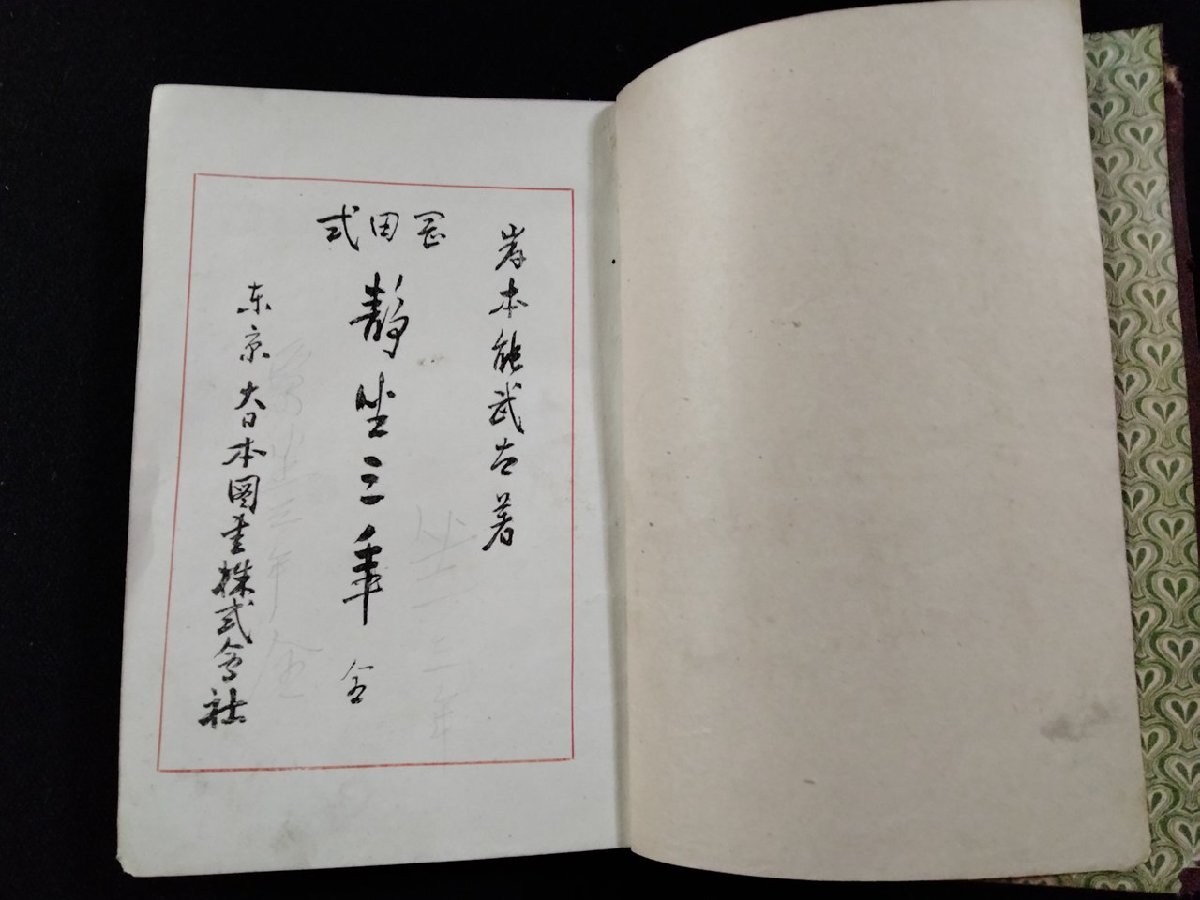 岸本能武太著
岡田式
静坐三年 全
东京 大日本图書株式会社